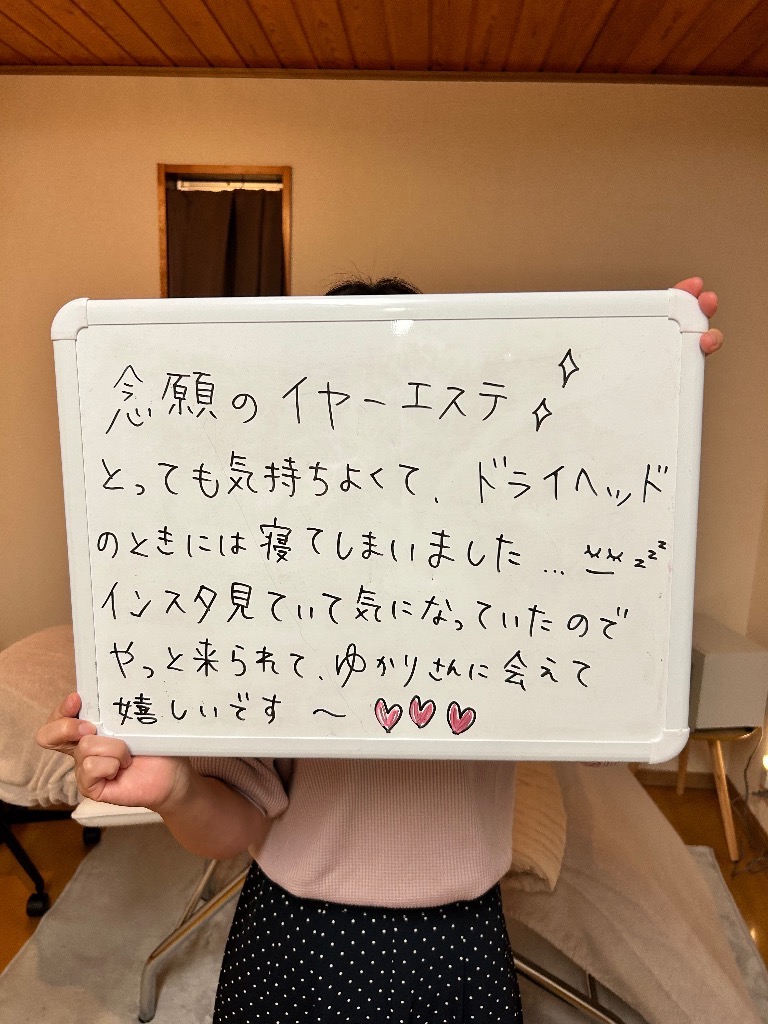 念願のイヤーエステ
とっても気持ちよくて、ドライヘッド
のときには寝てしまいました... zzz
インスタ見ていて気になっていたので
やっと来られて、ゆかりさんに会えて
嬉しいです〜